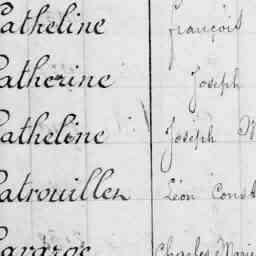 Catheline François
Catherine Joseph
Catheline Joseph
Catrouillen Léon Const
Charles Marie